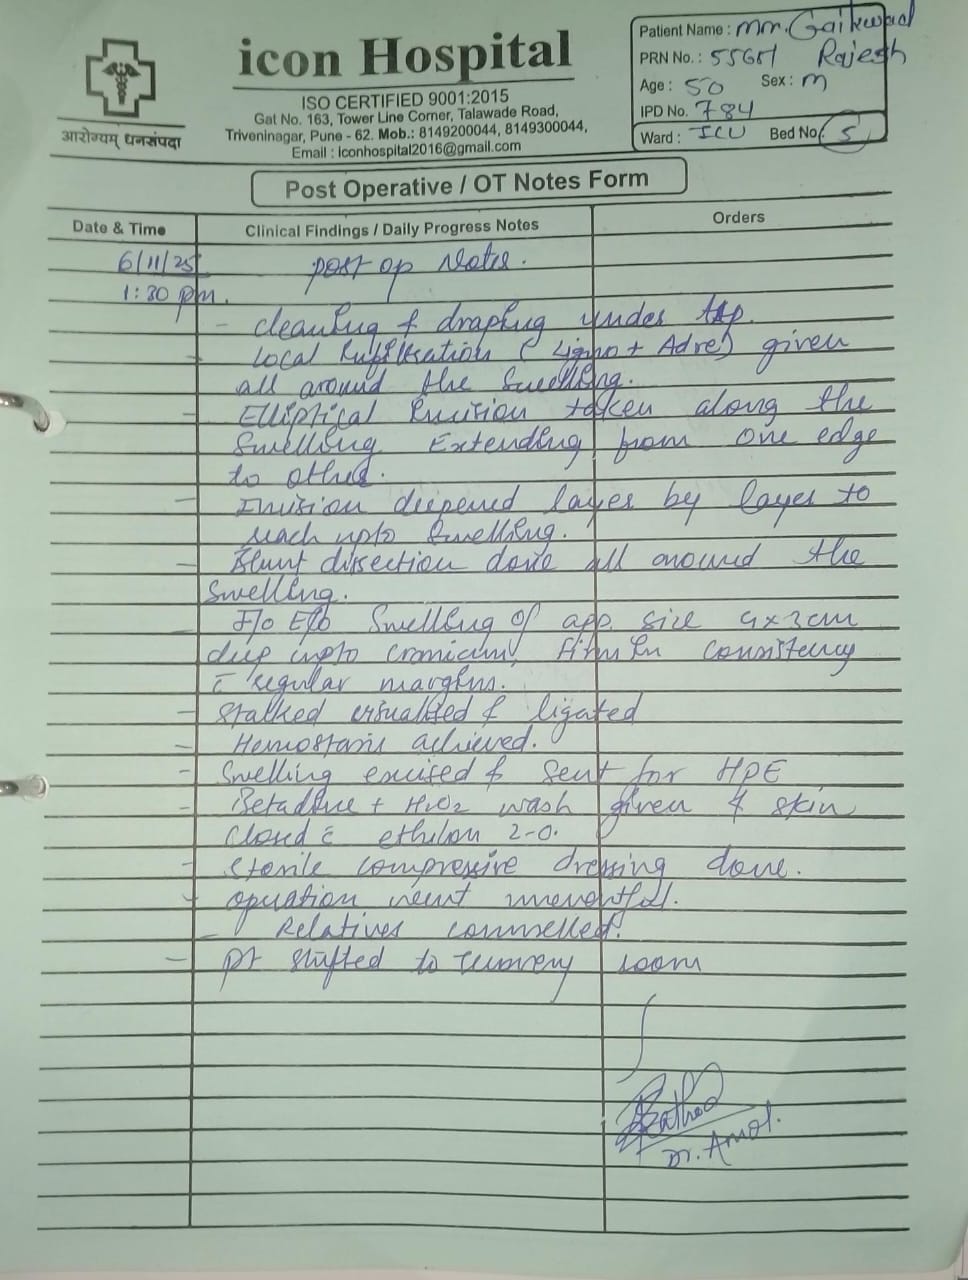 icon Hospital
ISO CERTIFIED 9001:2015
Gat No. 163, Tower Line Corner, Talawade Road,
Triveninagar, Pune - 62. Mob.: 8149200044, 8149300044,
Email : iconhospital2016@gmail.com
आरोग्यम् धनसंपदा
Patient Name : Mr. Gaikwad
Rajesh
PRN No. :
Age : 50 Sex : M
IPD No. 784
Ward : ICU Bed No. 5
Post Operative / OT Notes Form
Date & Time Clinical Findings / Daily Progress Notes Orders
6/11/25 post op Notes.
1:30 pm.
- cleaning & draping under
- Local Infiltration ( Ligno + Adre) given
all around the swelling.
- Elliptical Incision taken along the
swelling Extending from one edge
to other.
- Incision deepened layer by layer to
reach upto swelling.
- Blunt dissection done all around the
swelling.
- I/o E/o Swelling of app. size 4x3cm
deep upto cranium, firm in consistency
c̄ regular margins.
- Stalked visualised & ligated
- Hemostasis achieved.
- Swelling excised & sent for HPE
- Betadine + H2O2 wash given & skin
closed c̄ ethilon 2-0.
- Sterile compressive dressing done.
- operation went uneventful.
- Relatives counselled.
- pt shifted to recovery room
Dr. Amol.